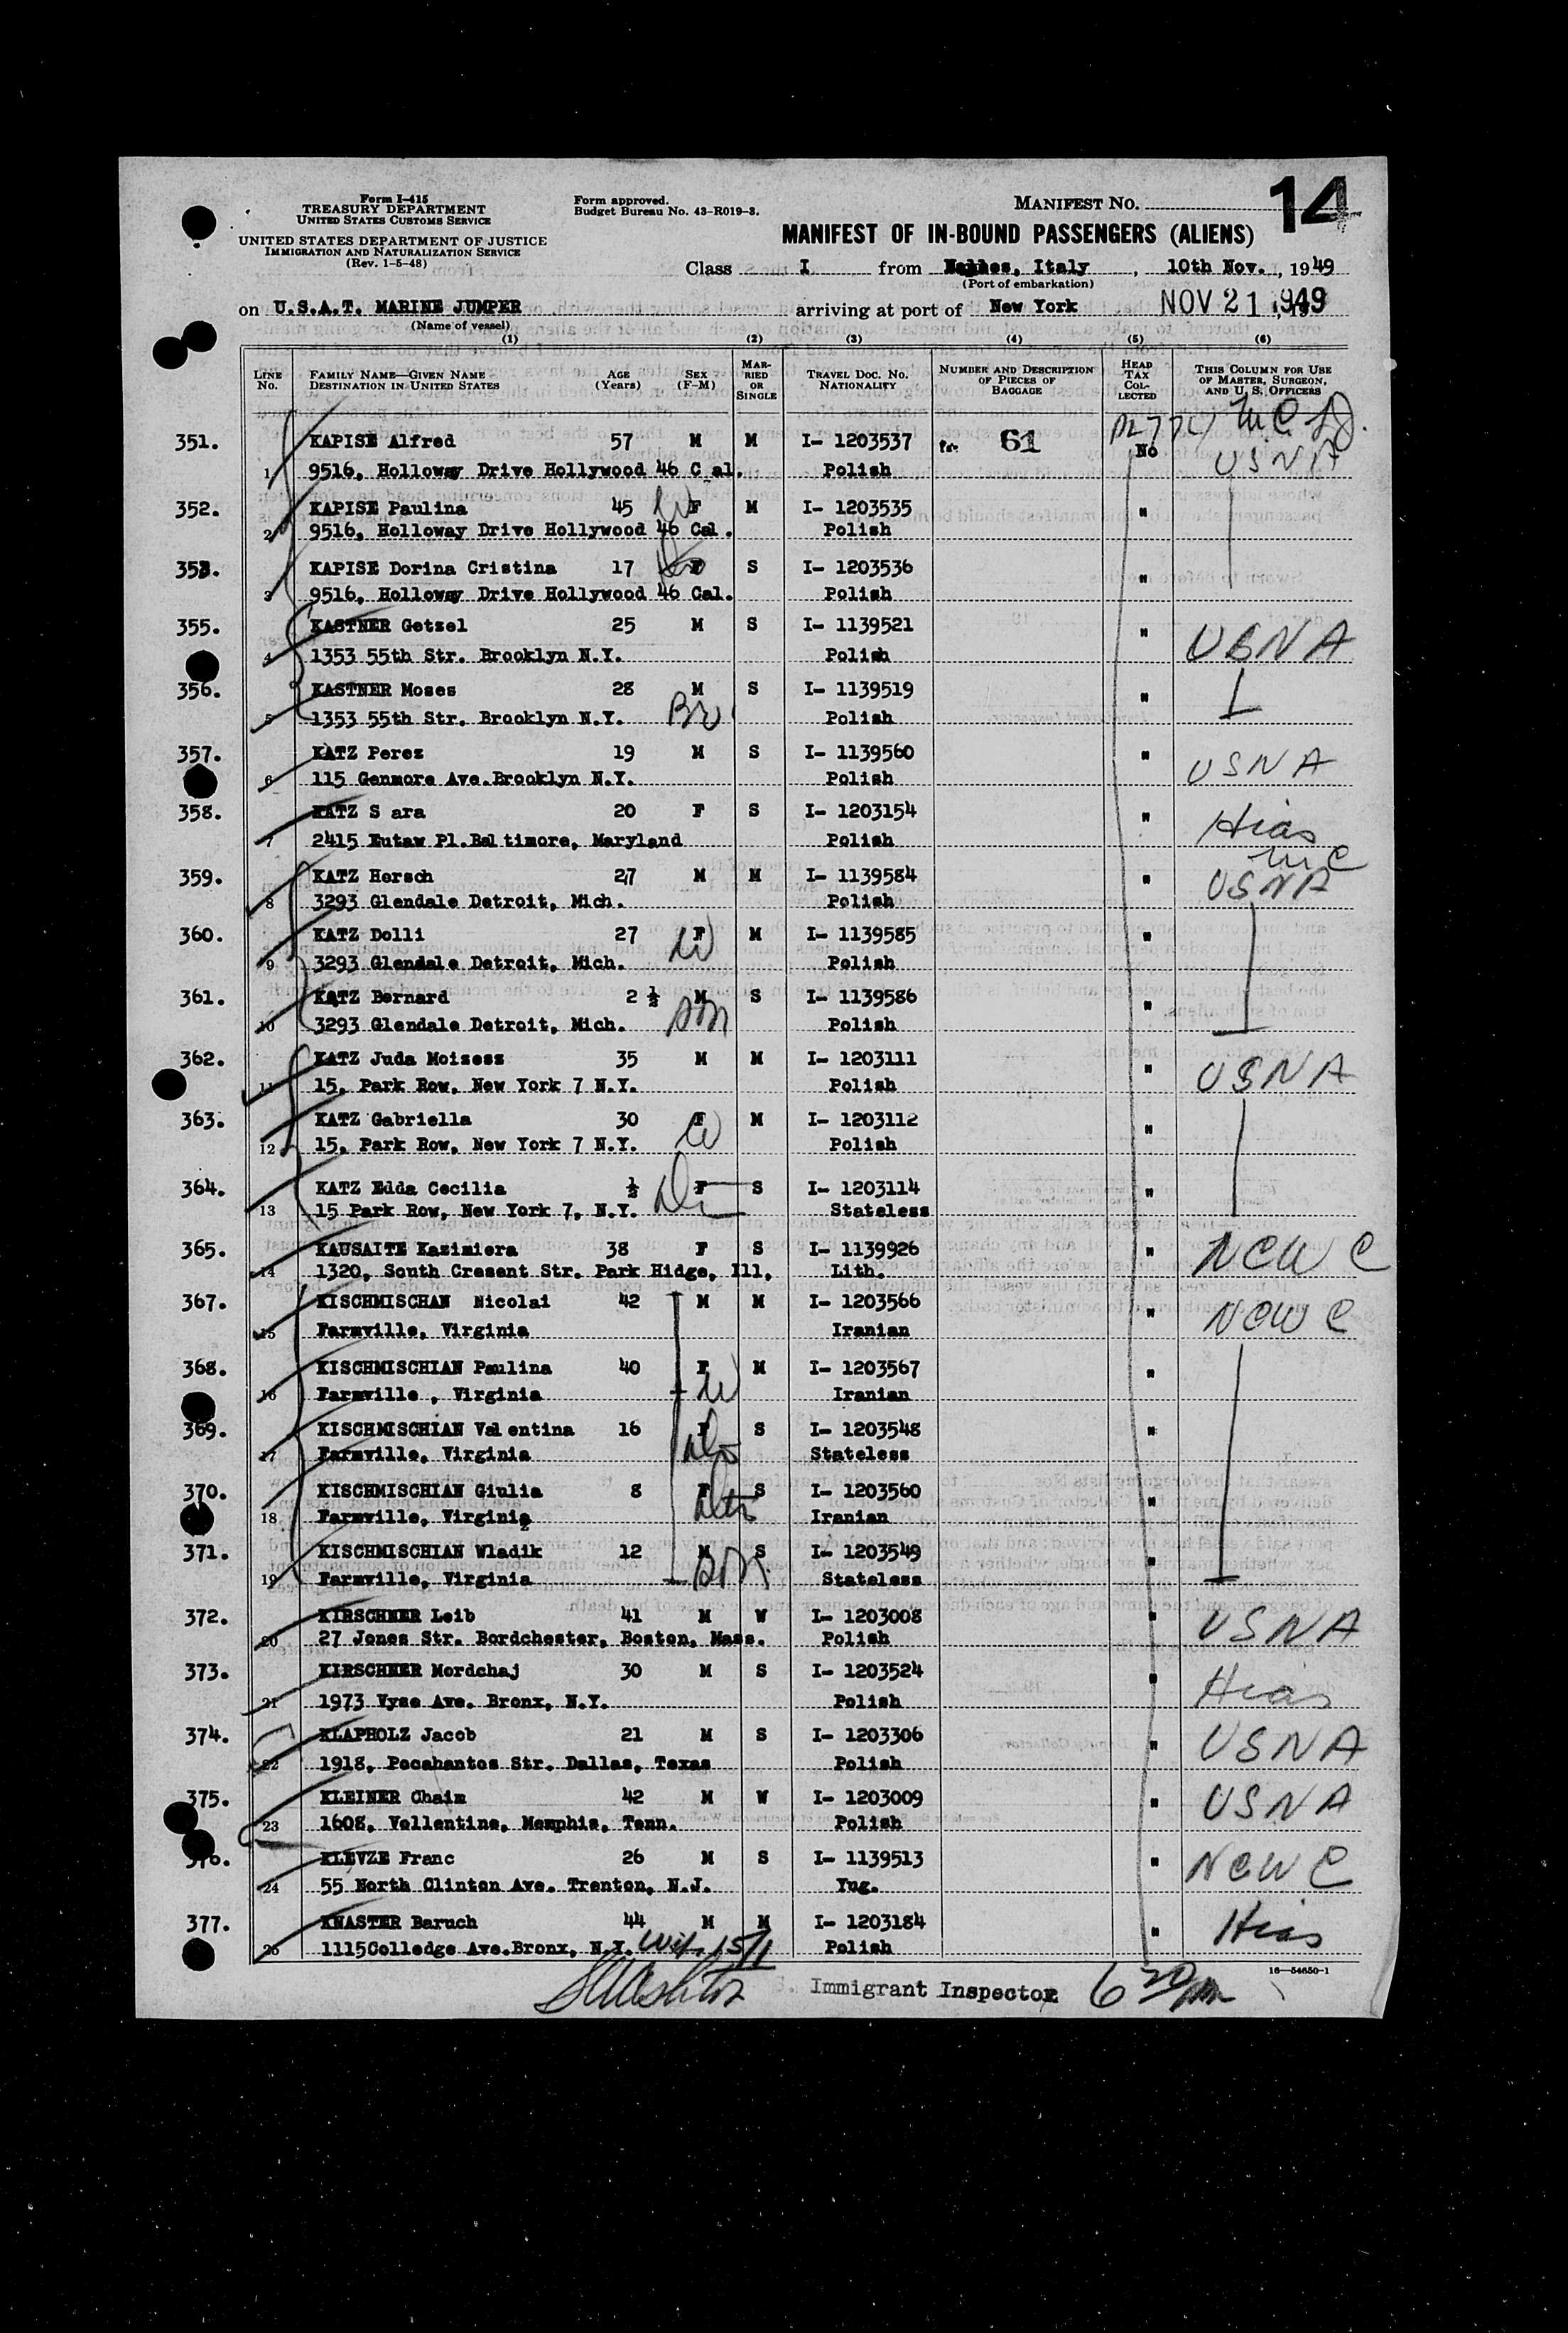 Form I-415
TREASURY DEPARTMENT
UNITED STATES CUSTOMS SERVICE
UNITED STATES DEPARTMENT OF JUSTICE
IMMIGRATION AND NATURALIZATION SERVICE
(Rev. 1-5-48)
Form approved.
Budget Bureau No. 43-R019-3.
MANIFEST NO. 14
MANIFEST OF IN-BOUND PASSENGERS (ALIENS)
Class I from Naples, Italy, 10th Nov., 1949
(Port of embarkation)
on U.S.A.T. MARINE JUMPER arriving at port of New York NOV 21 1949
(Name of vessel)
(1) (2) (3) (4) (5) (6)
LINE No. FAMILY NAME—GIVEN NAME DESTINATION IN UNITED STATES AGE (Years) SEX (F-M) MARRIED OR SINGLE TRAVEL DOC. NO. NATIONALITY NUMBER AND DESCRIPTION OF PIECES OF BAGGAGE HEAD TAX COLLECTED THIS COLUMN FOR USE OF MASTER, SURGEON, AND U. S. OFFICERS
351. KAPISE Alfred 57 M M I- 1203537 61 No USNA
1 9516, Holloway Drive Hollywood 46 C al. Polish
352. KAPISE Paulina 45 F W M I- 1203535 "
2 9516, Holloway Drive Hollywood 46 Cal. Polish
353. KAPISE Dorina Cristina 17 F S I- 1203536 "
3 9516, Holloway Drive Hollywood 46 Cal. Polish
355. KASTNER Getzel 25 M S I- 1139521 " USNA
4 1353 55th Str. Brooklyn N.Y. Polish
356. KASTNER Moses 28 M S I- 1139519 "
5 1353 55th Str. Brooklyn N.Y. Bro Polish
357. KATZ Perez 19 M S I- 1139560 " USNA
6 115 Genmore Ave.Brooklyn N.Y. Polish
358. KATZ S ara 20 F S I- 1203154 " Hias
7 2415 Eutaw Pl.Baltimore, Maryland Polish
359. KATZ Hersch 27 M M I- 1139584 " USNA
8 3293 Glendale Detroit, Mich. Polish
360. KATZ Dolli 27 F W M I- 1139585 "
9 3293 Glendale Detroit, Mich. Polish
361. KATZ Bernard 2 ½ M S I- 1139586 "
10 3293 Glendale Detroit, Mich. son Polish
362. KATZ Juda Moizesz 35 M M I- 1203111 " USNA
11 15, Park Row, New York 7 N.Y. Polish
363. KATZ Gabriella 30 F M I- 1203112 "
12 15, Park Row, New York 7 N.Y. W Polish
364. KATZ Edda Cecilia ½ F S I- 1203114 "
13 15 Park Row, New York 7, N.Y. Stateless
365. KAUSAITE Kazimiera 38 F S I- 1139926 " NCWC
14 1320, South Cresent Str. Park Hidge, Ill, Lith.
367. KISCHMISCHAN Nicolai 42 M M I- 1203566 " NCWC
15 Farmville, Virginia Iranian
368. KISCHMISCHIAN Paulina 40 F M I- 1203567 "
16 Farmville , Virginia W Iranian
369. KISCHMISCHIAN Valentina 16 F S I- 1203548 "
17 Farmville, Virginia Stateless
370. KISCHMISCHIAN Giulia 8 F S I- 1203560 "
18 Farmville, Virginia Iranian
371. KISCHMISCHIAN Wladik 12 M S I- 1203549 "
19 Farmville, Virginia son Stateless
372. KIRSCHNER Leib 41 M W I- 1203008 " USNA
20 27 Jones Str. Bordchester, Boston, Mass. Polish
373. KIRSCHNER Mordchaj 30 M S I- 1203524 " Hias
21 1973 Vyse Ave. Bronx, N.Y. Polish
374. KLAPHOLZ Jacob 21 M S I- 1203306 " USNA
22 1918, Pocahantos Str. Dallas, Texas Polish
375. KLEINER Chaim 42 M W I- 1203009 " USNA
23 1608, Vollentine, Memphis, Tenn. Polish
376. KLEVZE Franc 26 M S I- 1139513 " NCWC
24 55 North Clinton Ave. Trenton, N.J. Yug.
377. KNASTER Baruch 44 M M I- 1203184 " Hias
25 1115Colledge Ave.Bronx, N.Y. Polish
Immigrant Inspector 6 30 pm
16—54650-1